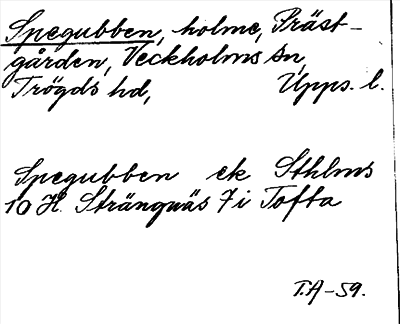 Spegubben, holme, Präst-
gården, Veckholms sn,
Trögds hd, Upps. l.
Spegubben ek Sthlms
10 H. Strängnäs 7 i Tofta
T.A-59.